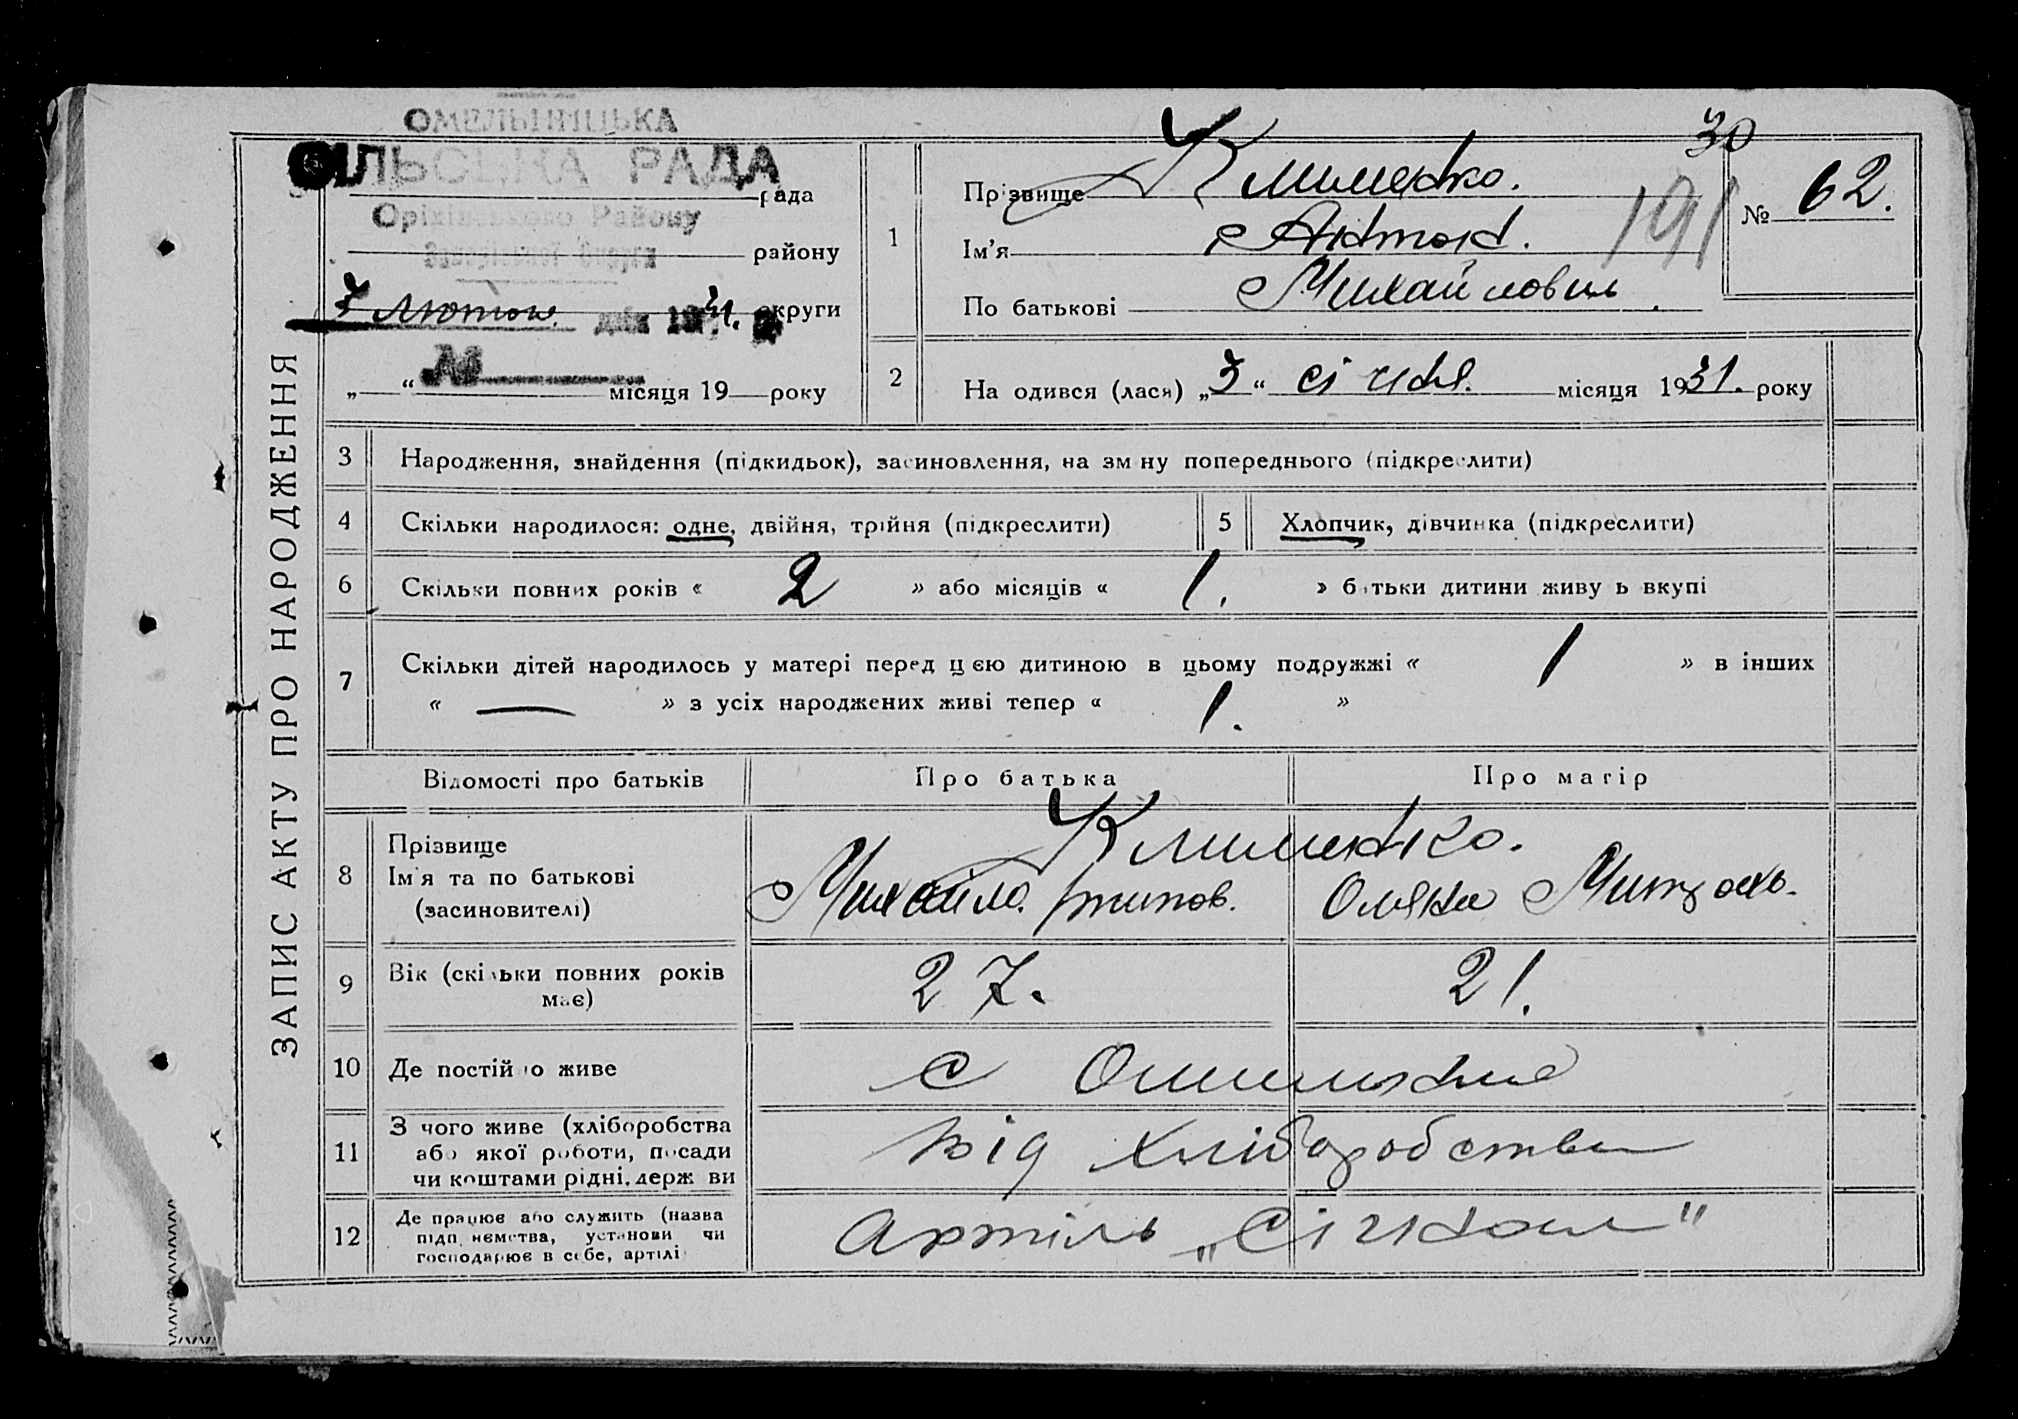 ОМЕЛЬНИЦЬКА
СІЛЬСЬКА РАДА
рада
Оріхівського Району
району
Запорізької Округи
7 лютого дня 1931. округи
„ “ місяця 19 року
ЗАПИС АКТУ ПРО НАРОДЖЕННЯ
30
191
№ 62.
1
Прізвище Клименко.
Ім'я Антон.
По батькові Михайлович
2
На одився (лася) „3“ січня. місяця 1931. року
3 Народження, знайдення (підкидьок), засиновлення, на зм ну попереднього (підкреслити)
4 Скільки народилося: одне, двійня, трійня (підкреслити)
5 Хлопчик, дівчинка (підкреслити)
6 Скільки повних років « 2 » або місяців « 1. » батьки дитини живу ь вкупі
7 Скільки дітей народилось у матері перед цією дитиною в цьому подружжі « 1 » в інших
« — » з усіх народжених живі тепер « 1. »
Відомості про батьків Про батька Про матір
8 Прізвище
Ім'я та по батькові
(засиновителі)
Клименко.
Михайло. Оляна
9 Вік (скільки повних років
має)
27. 21.
10 Де постійно живе
с Омельник
11 З чого живе (хліборобства
або якої роботи, посади
чи коштами рідні, держ ви
Від хліборобства
12 Де працює або служить (назва
підп иємства, установи чи
господарює в себе, артілі
Артіль